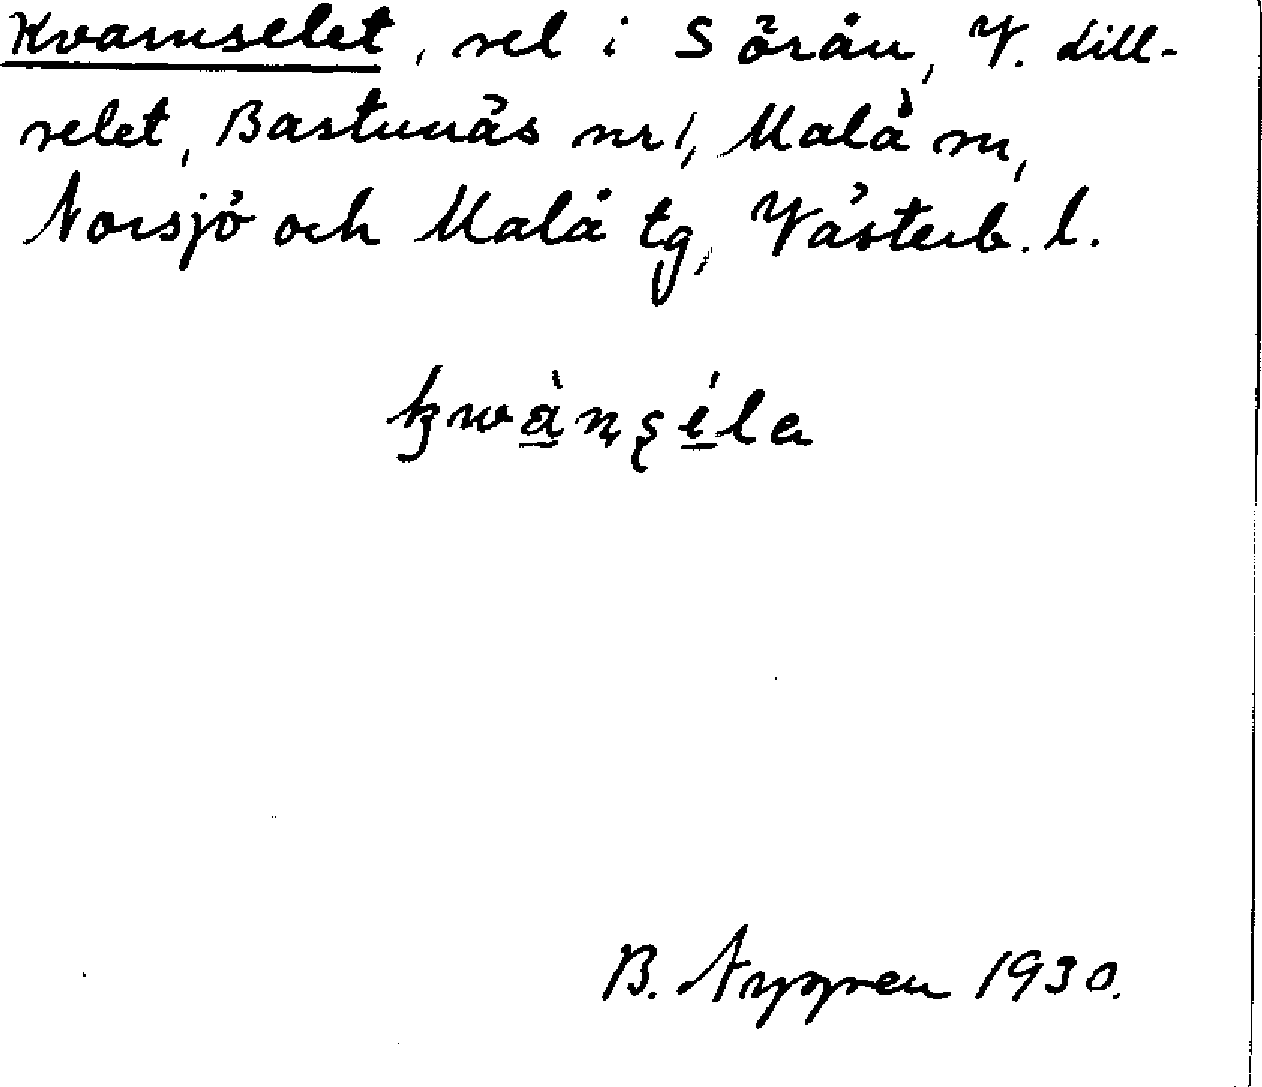 Kvarnselet, sel i Sörån, V. Lill-
selet, Bastunäs nr 1, Malå sn,
Norsjö och Malå tg, Västerb. l.
B. Nygren 1930.